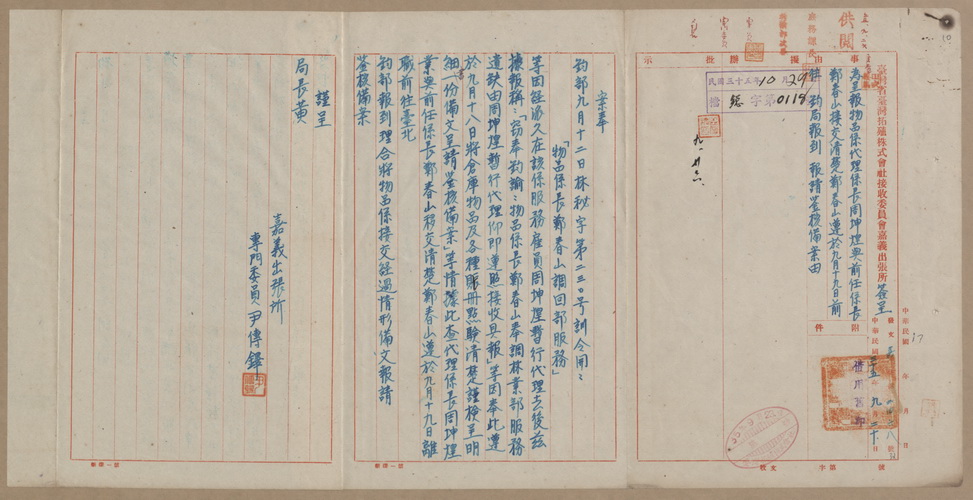 臺灣省臺灣拓殖株式會社接收委員會嘉義出張所簽呈
事由
擬辦
批示
為呈報物品係代理係長周坤煌與前任係長
鄭春山接交清楚鄭春山遵於九月十九日前
往鈞局報到報請鑒核備案由
附件
中華民國 年 月 日
中華民國三十五年九月二十日
供閱
民國三十五年10月29日
總字第0118
借用舊印
九、廿六
字第 號
案奉
鈞部九月十二日林秘字第二三0號訓令開：
「物品係長鄭春山調回部服務」
等因經派久在該係服務雇員周坤煌暫行代理去後茲
據報稱：「竊奉鈞諭：物品係長鄭春山奉調林業部服務
遺缺由周坤煌暫行代理仰即遵照接收具報」等因奉此遵
於九月十八日將倉庫物品及各種賬冊點驗清楚謹檢呈明
細一份備文呈請鑒核備案」等情據此查代理係長周坤煌
業與前任係長鄭春山移交清楚鄭春山遵於九月十九日離
職前往臺北
鈞部報到理合將物品係接交經過情形備文報請
鑒核備案
謹呈
局長黃
嘉義出張所
專門委員尹傳鐸